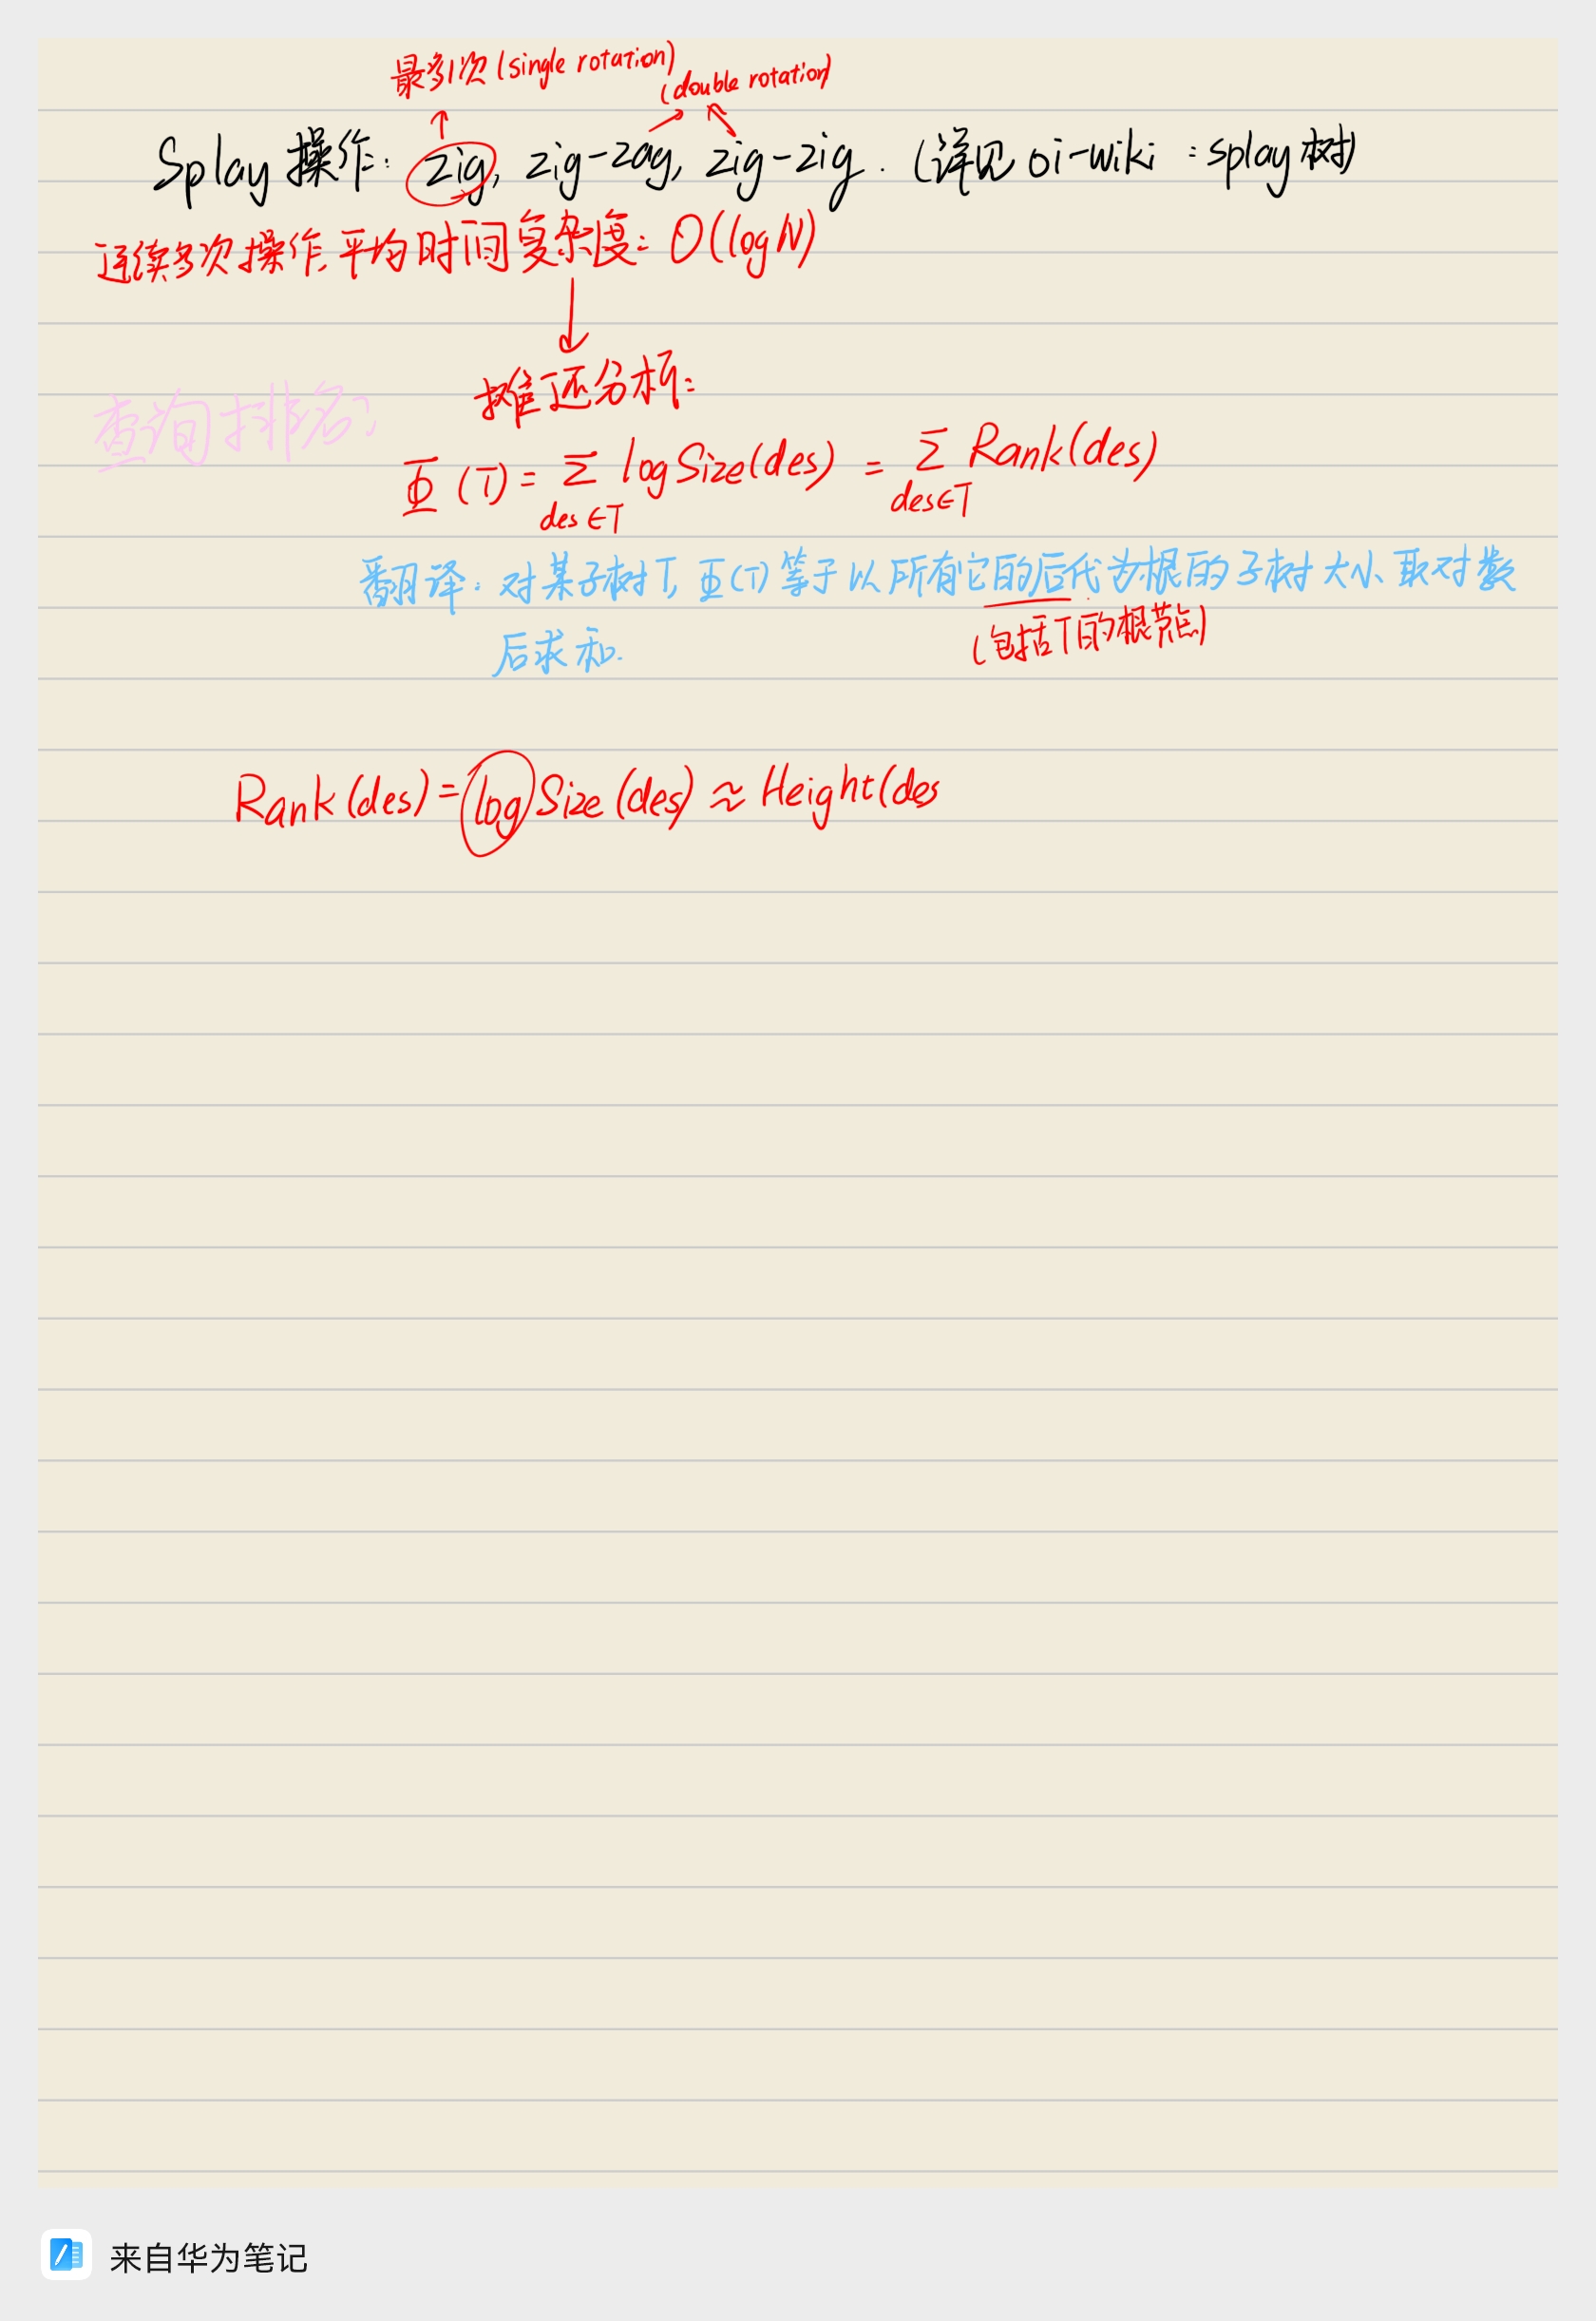 最多1次 (single rotation)
(double rotation)
Splay 操作: zig, zig-zag, zig-zig. (详见 oi-wiki : splay 树)
连续多次操作,平均时间复杂度: O(log N)
摊还分析:
查询排名:
Φ (T) = Σ log Size(des) = Σ Rank(des)
des∈T des∈T
翻译: 对某子树T, Φ(T) 等于以所有它的后代为根的子树大小取对数
(包括T的根节点)
后求和.
Rank(des) = log Size (des) ≈ Height(des
来自华为笔记